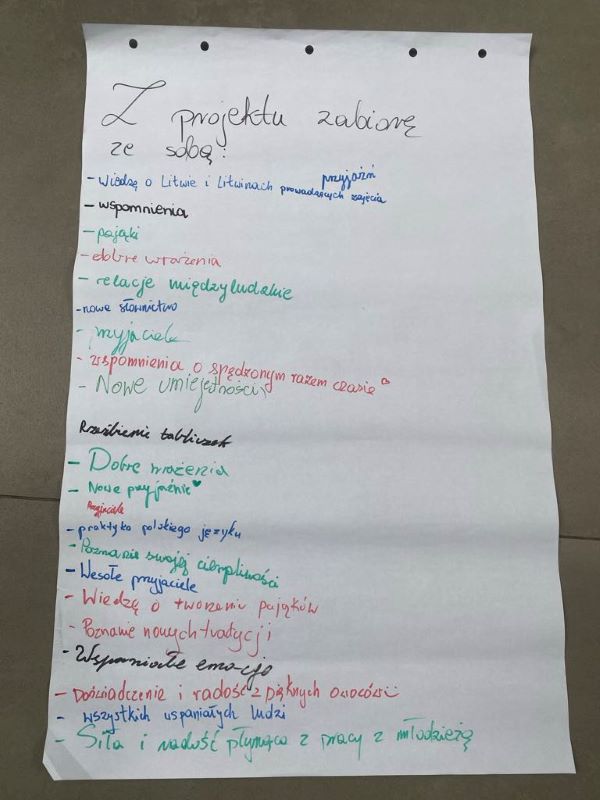 Z projektu zabiorę
ze sobą:
- Wiedzę o Litwie i Litwinach prowadzących zajęcia
przyjaźń
- wspomnienia
- pająki
- dobre wrażenia
- relacje międzyludzkie
- nowe słownictwo
- przyjaciele
- wspomnienia o spędzonym razem czasie
- Nowe umiejętności
Rzeźbienie tabliczek
- Dobre wrażenia
- Nowe przyjaźnie ♥
Przyjaciele
- praktyka polskiego języku
- Poznanie swojej cierpliwości
- Wesołe przyjaciele
- Wiedzę o tworzeniu pająków
- Poznanie nowych tradycji
- Wspaniałe emocje
- Doświadczenie i radość z pięknych owoców
- wszystkich uspaniałych ludzi
- Siła i radość płynąca z pracy z młodzieżą